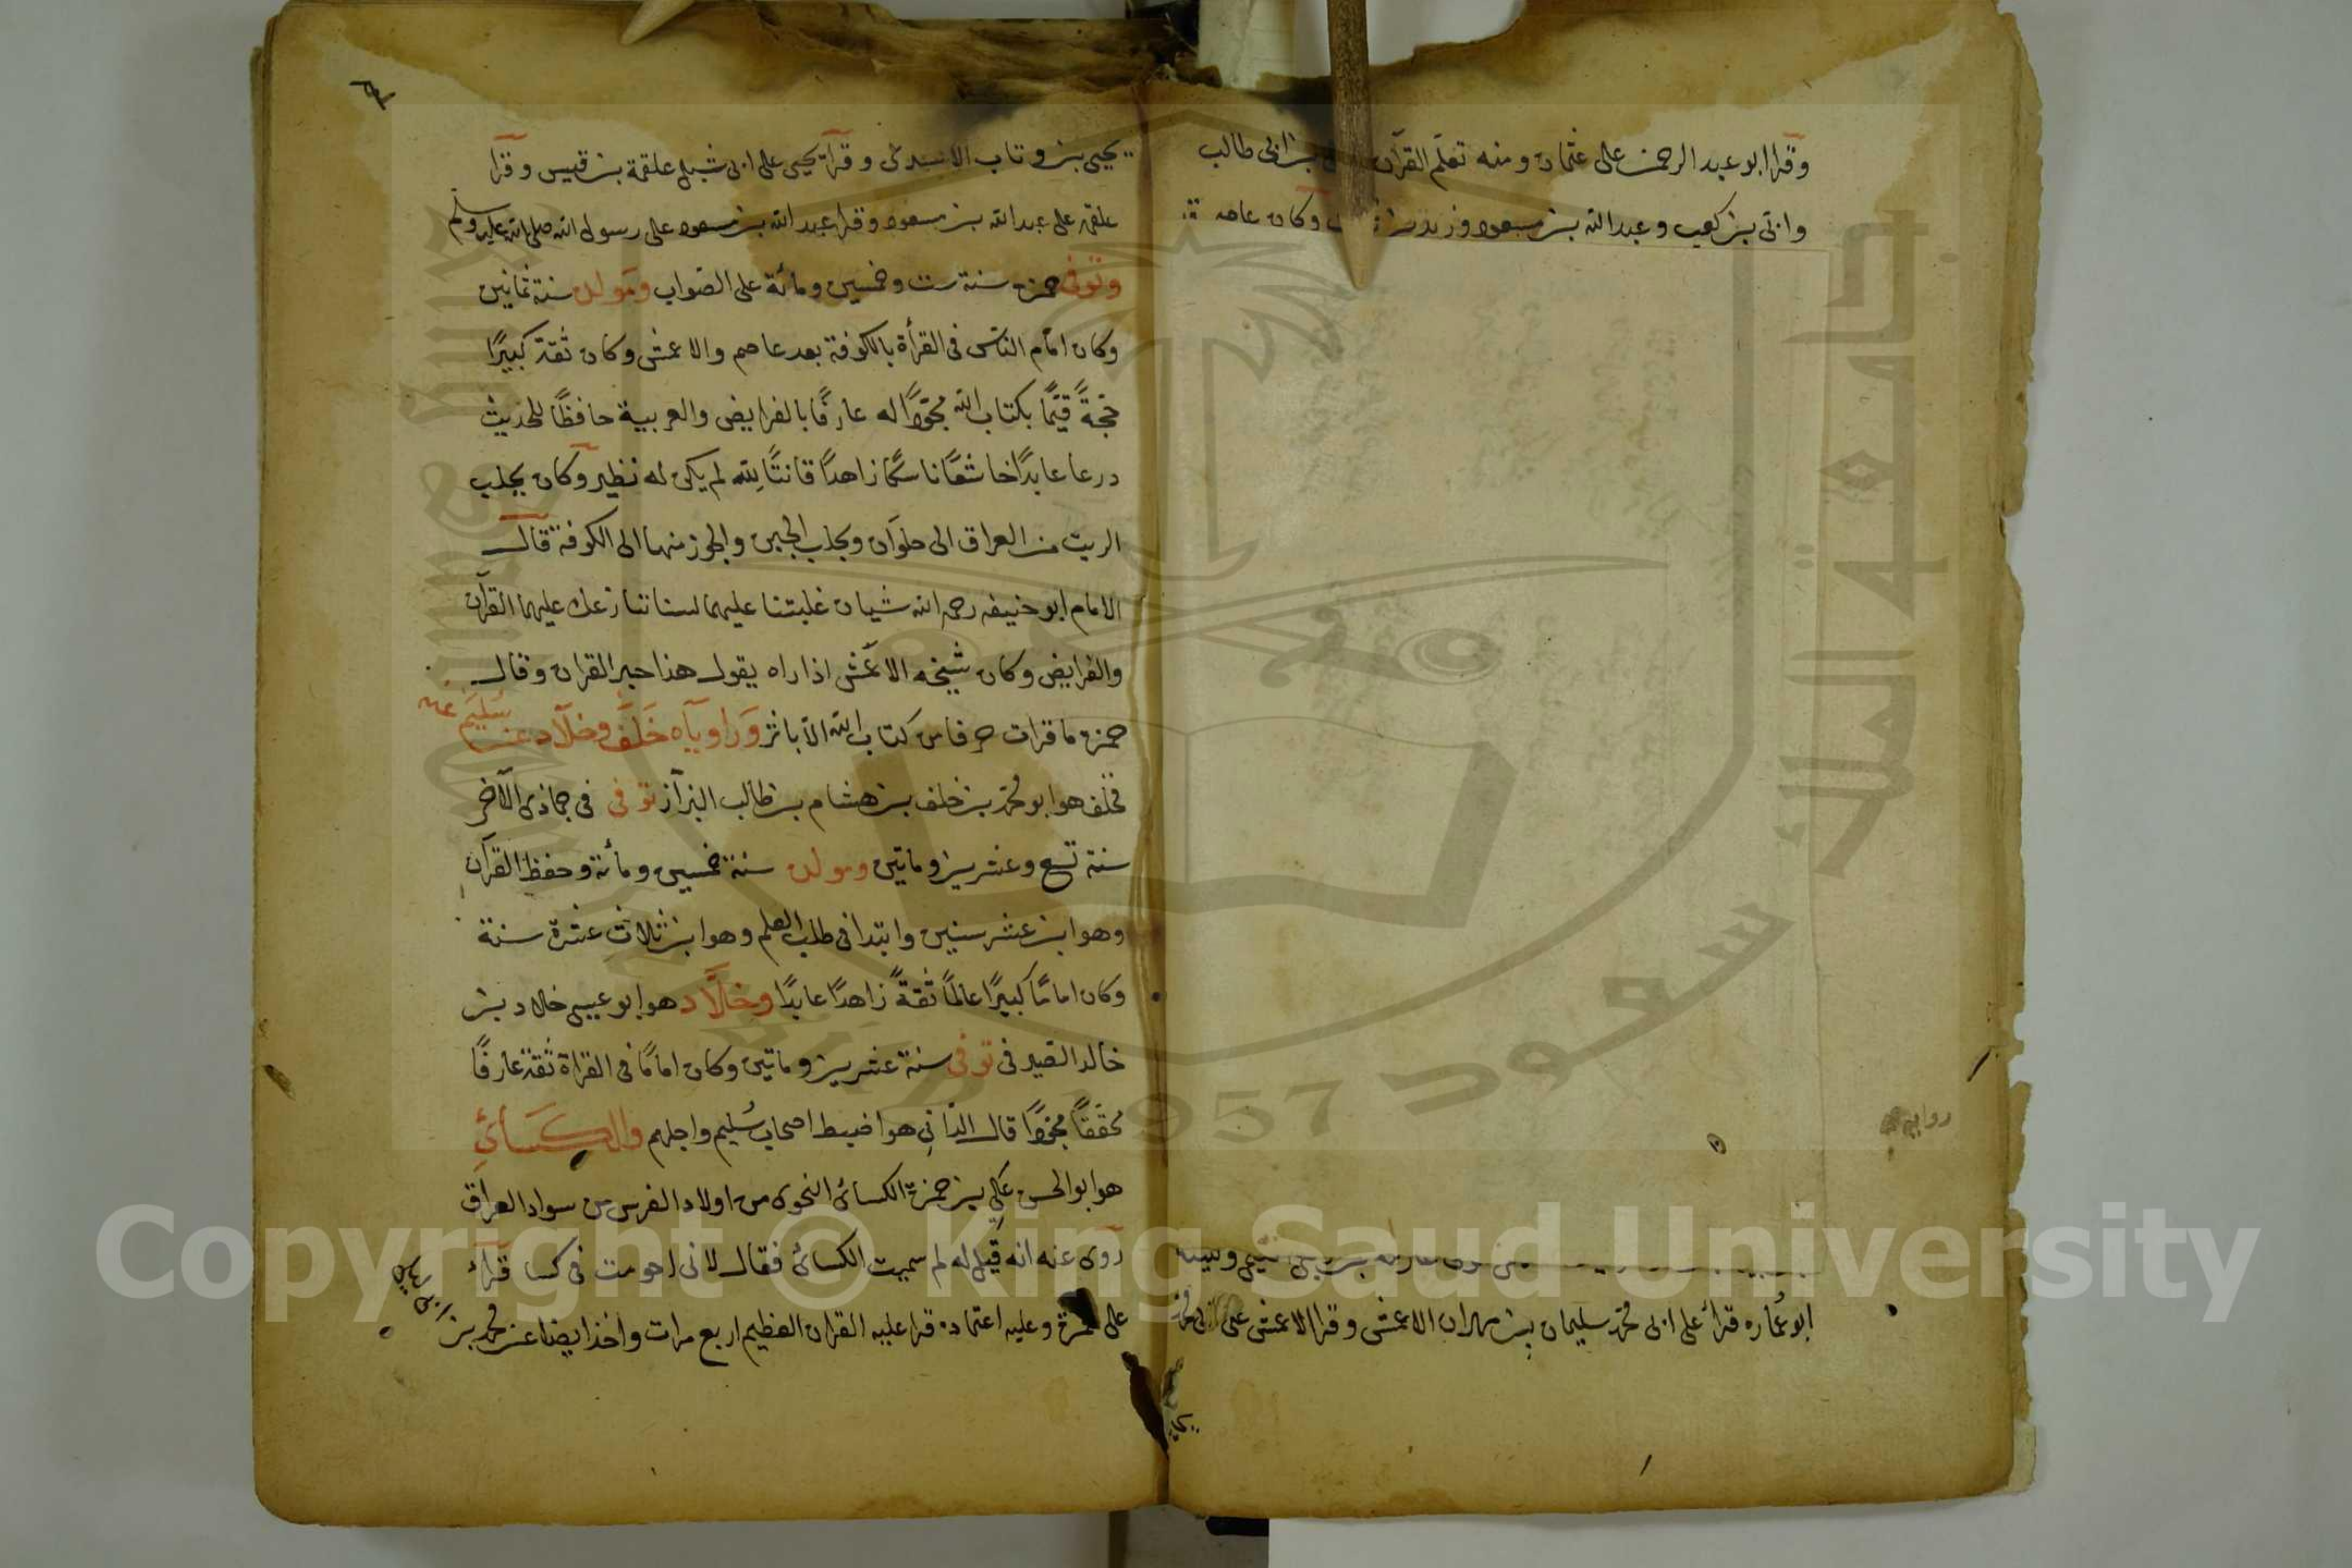 وقرا ابو عبد الرحمن على عثمان ومنه تعلم القرآن بن ابى طالب
وابى بن كعب وعبد الله بن مسعود وزيد بن وكان عاصم
ابو عماره قرأ على ابى محمد سليمان بن مهران الاعمش وقرا الاعمش على ابى محمد
يحيى بن وثاب الاسدى وقرآ يحيى على ابى شبل علقمة بن قيس وقرا
علقمه على عبد الله بن مسعود وقرا عبد الله بن مسعود على رسول الله صلى الله عليه وسلم
وتوفى حمزه سنة ست وخمسين ومائة على الصواب ومولده سنة ثمانين
وكان امام الناس فى القرأة بالكوفة بعد عاصم والاعمش وكان ثقة كبيرًا
حجةً قيّمًا بكتاب الله مجوّدًا له عارفًا بالفرايض والعربية حافظًا للحديث
درعا عابدًا خاشعًا ناسكًا زاهدًا قانتًا لله لم يكن له نظير وكان يجلب
الزيت من العراق الى حلوان ويجلب الجبن والجوز منها الى الكوفة قال
الامام ابو حنيفه رحمه الله شيان غلبتنا عليهما لسنا ننازعك عليهما القرآن
والفرايض وكان شيخه الاعمش اذا راه يقول هذا حبر القران وقال
حمزه ما قرات حرفا من كتاب الله الا باثر وراوياه خلف وخلاد عن سليم عنه
فخلف هو ابو محمد بن خلف بن هشام بن طالب البزآز توفى فى جمادى الآخر
سنة تسع وعشرين وماتين ومولده سنة خمسين ومأنة وحفظ القرآن
وهو ابن عشر سنين وابتدا فى طلب العلم وهو ابن ثلاث عشرة سنة
وكان امامًا كبيرًا عالمًا ثقةً زاهدًا عابدًا وخلّاد هو ابو عيسى خلاد بن
خالد الصيرفى توفى سنة عشرين وماتين وكان امامًا فى القراة ثقة عارفًا
محققًا مجوّدًا قال الدانى هو اضبط اصحاب سُليم واجلهم والكسائى
هو ابو الحسن على بن حمزة الكسائى النحوى من اولاد الفرس من سواد العراق
روى عنه انه قيل له لم سميت الكسائى فقال لانى احرمت فى كسا قرأ
على حمزة وعليه اعتماده قرا عليه القران العظيم اربع مرات واخذ ايضا عن محمد بن
ابى ليلى
Copyright © King Saud University
1957